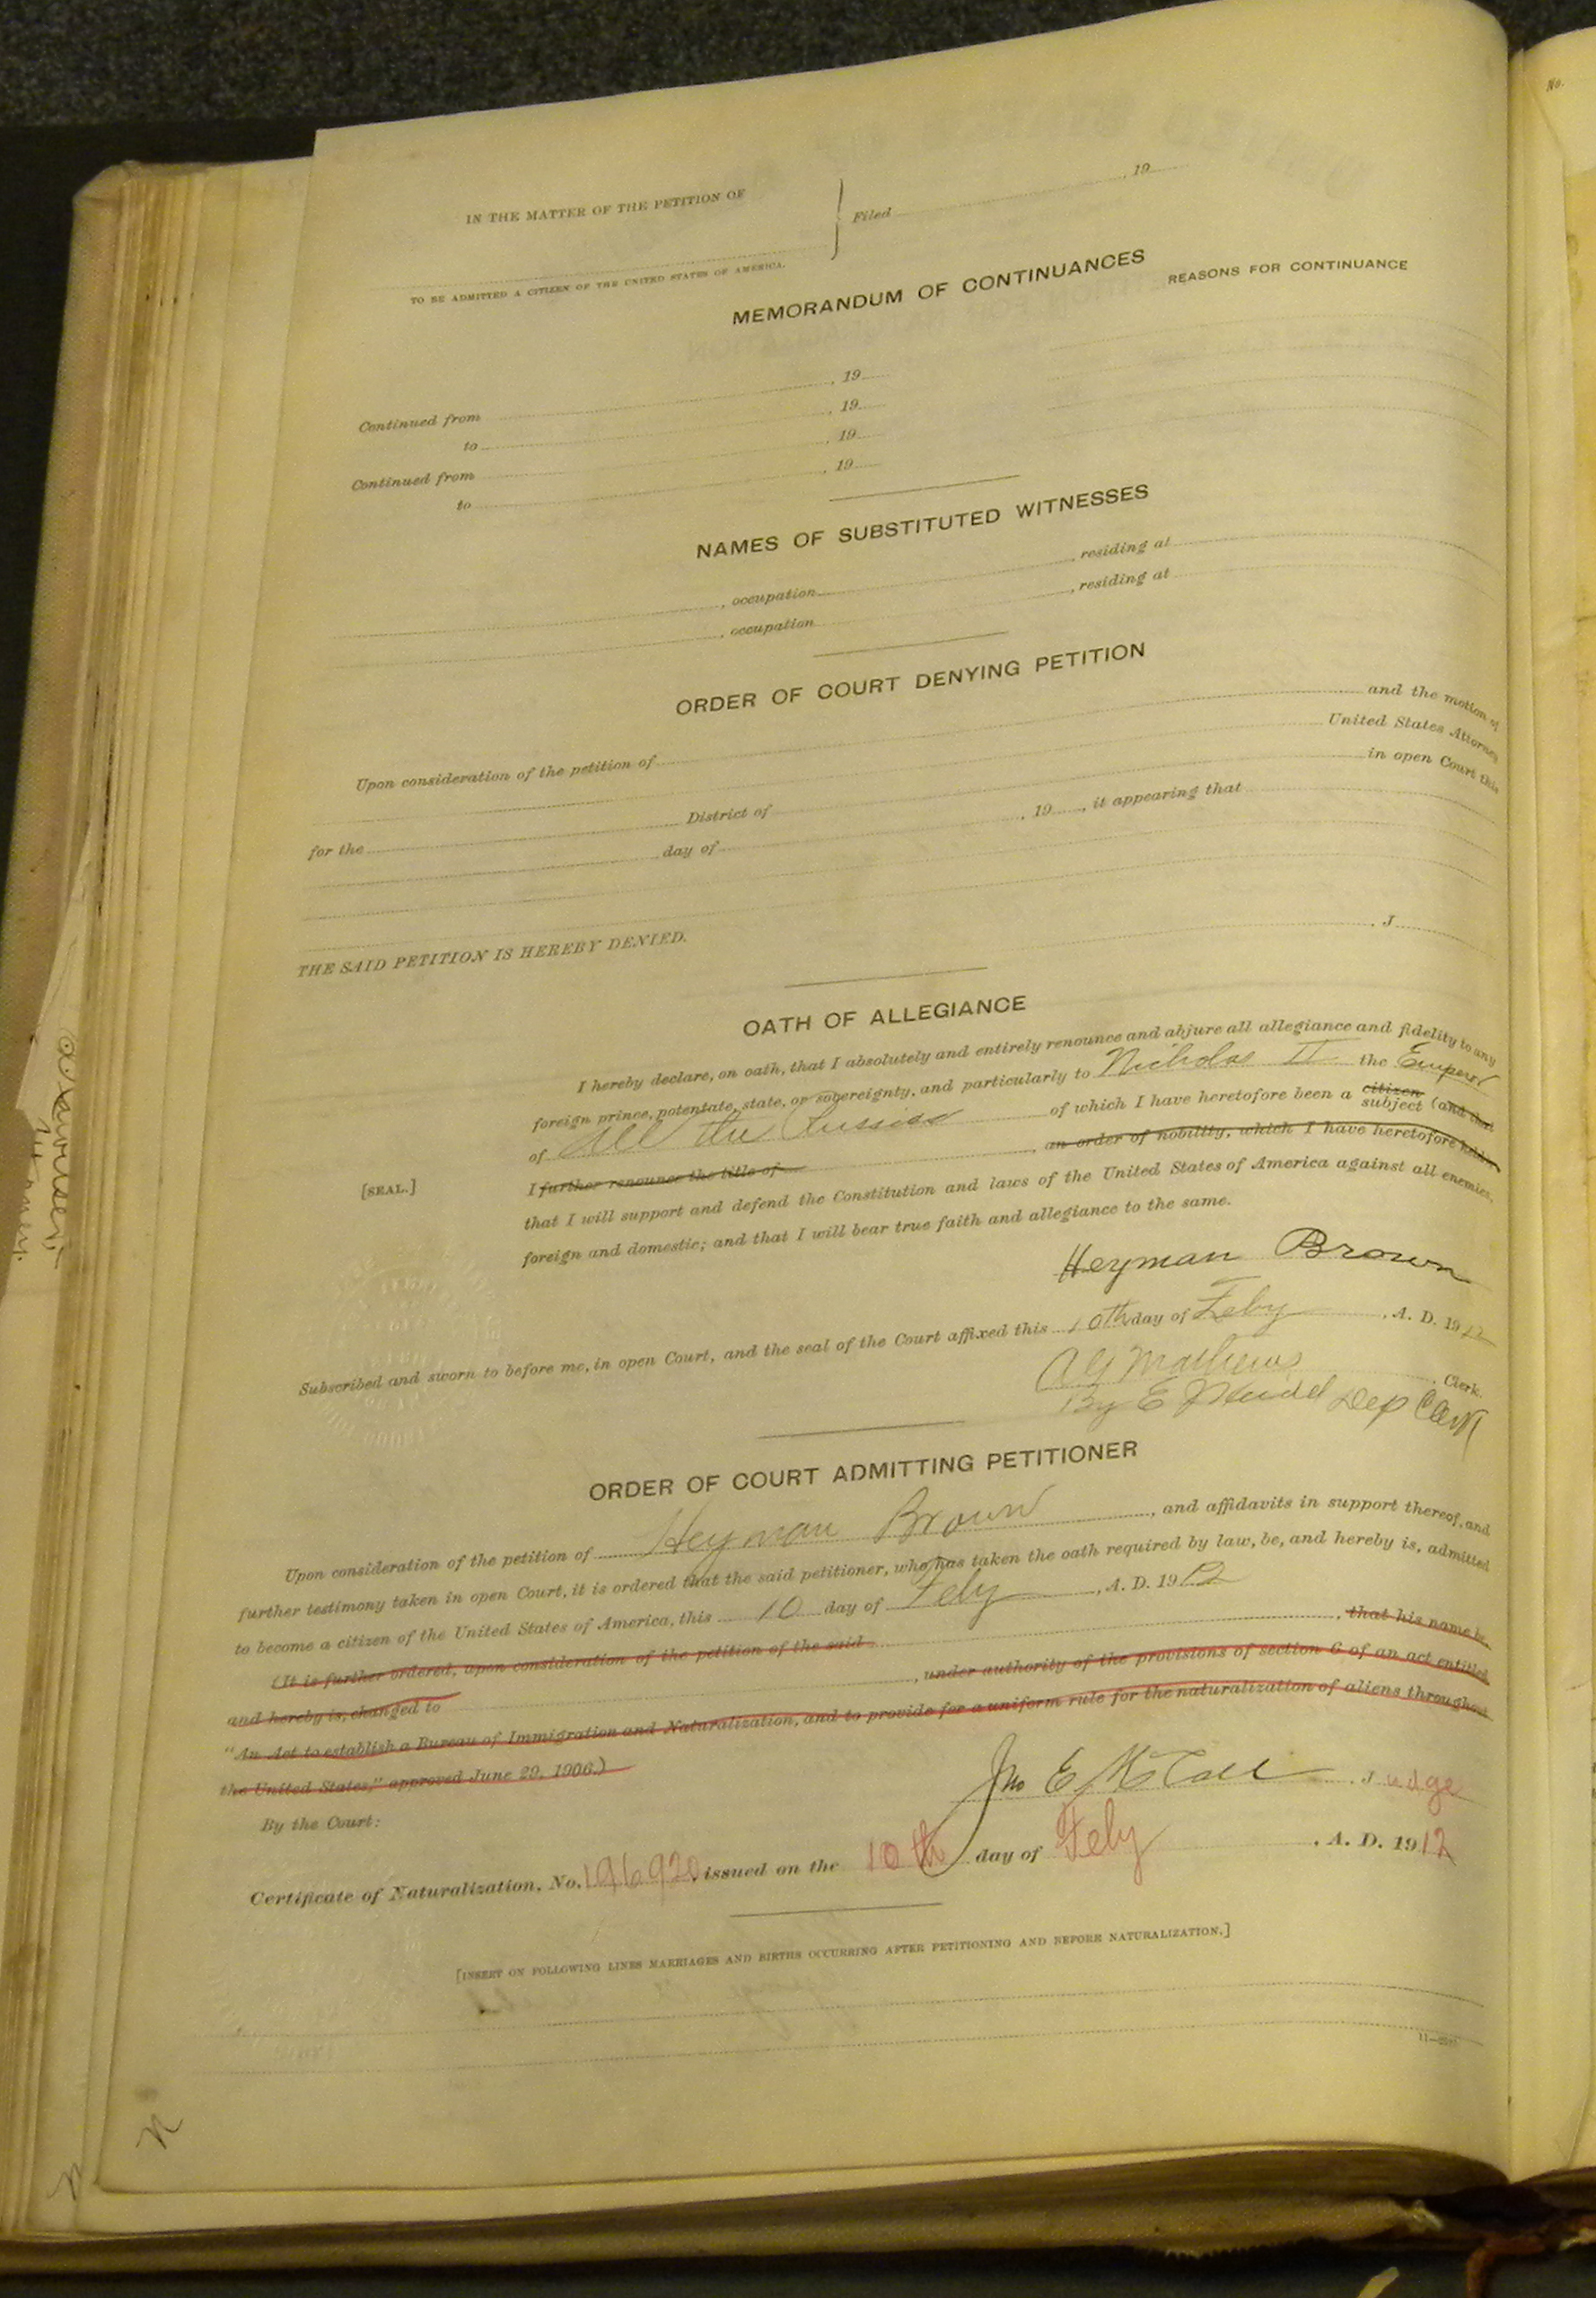 IN THE MATTER OF THE PETITION OF
Filed , 19
TO BE ADMITTED A CITIZEN OF THE UNITED STATES OF AMERICA.
MEMORANDUM OF CONTINUANCES
REASONS FOR CONTINUANCE
Continued from , 19
to , 19
Continued from , 19
to , 19
NAMES OF SUBSTITUTED WITNESSES
, occupation , residing at
, occupation , residing at
ORDER OF COURT DENYING PETITION
Upon consideration of the petition of and the motion of
United States Attorney
for the District of in open Court this
day of , 19 , it appearing that
THE SAID PETITION IS HEREBY DENIED.
, J
OATH OF ALLEGIANCE
I hereby declare, on oath, that I absolutely and entirely renounce and abjure all allegiance and fidelity to any
foreign prince, potentate, state, or sovereignty, and particularly to Nicholas II the Emperor
of All the Russias of which I have heretofore been a citizen subject (and that
I further renounce the title of , an order of nobility, which I have heretofore held);
[SEAL.]
that I will support and defend the Constitution and laws of the United States of America against all enemies,
foreign and domestic; and that I will bear true faith and allegiance to the same.
Heyman Brown
Subscribed and sworn to before me, in open Court, and the seal of the Court affixed this 10th day of Feby , A. D. 1912
Mathews , Clerk.
By E Dep Clerk
ORDER OF COURT ADMITTING PETITIONER
Upon consideration of the petition of Heyman Brown , and affidavits in support thereof, and
further testimony taken in open Court, it is ordered that the said petitioner, who has taken the oath required by law, be, and hereby is, admitted
to become a citizen of the United States of America, this 10 day of Feby , A. D. 1912
(It is further ordered, upon consideration of the petition of the said , that his name be,
and hereby is, changed to , under authority of the provisions of section 6 of an act entitled
"An Act to establish a Bureau of Immigration and Naturalization, and to provide for a uniform rule for the naturalization of aliens throughout
the United States," approved June 29, 1906.)
By the Court:
Jno E McCall , Judge
Certificate of Naturalization, No. 196920, issued on the 10th day of Feby , A. D. 1912
[INSERT ON FOLLOWING LINES MARRIAGES AND BIRTHS OCCURRING AFTER PETITIONING AND BEFORE NATURALIZATION.]
No.